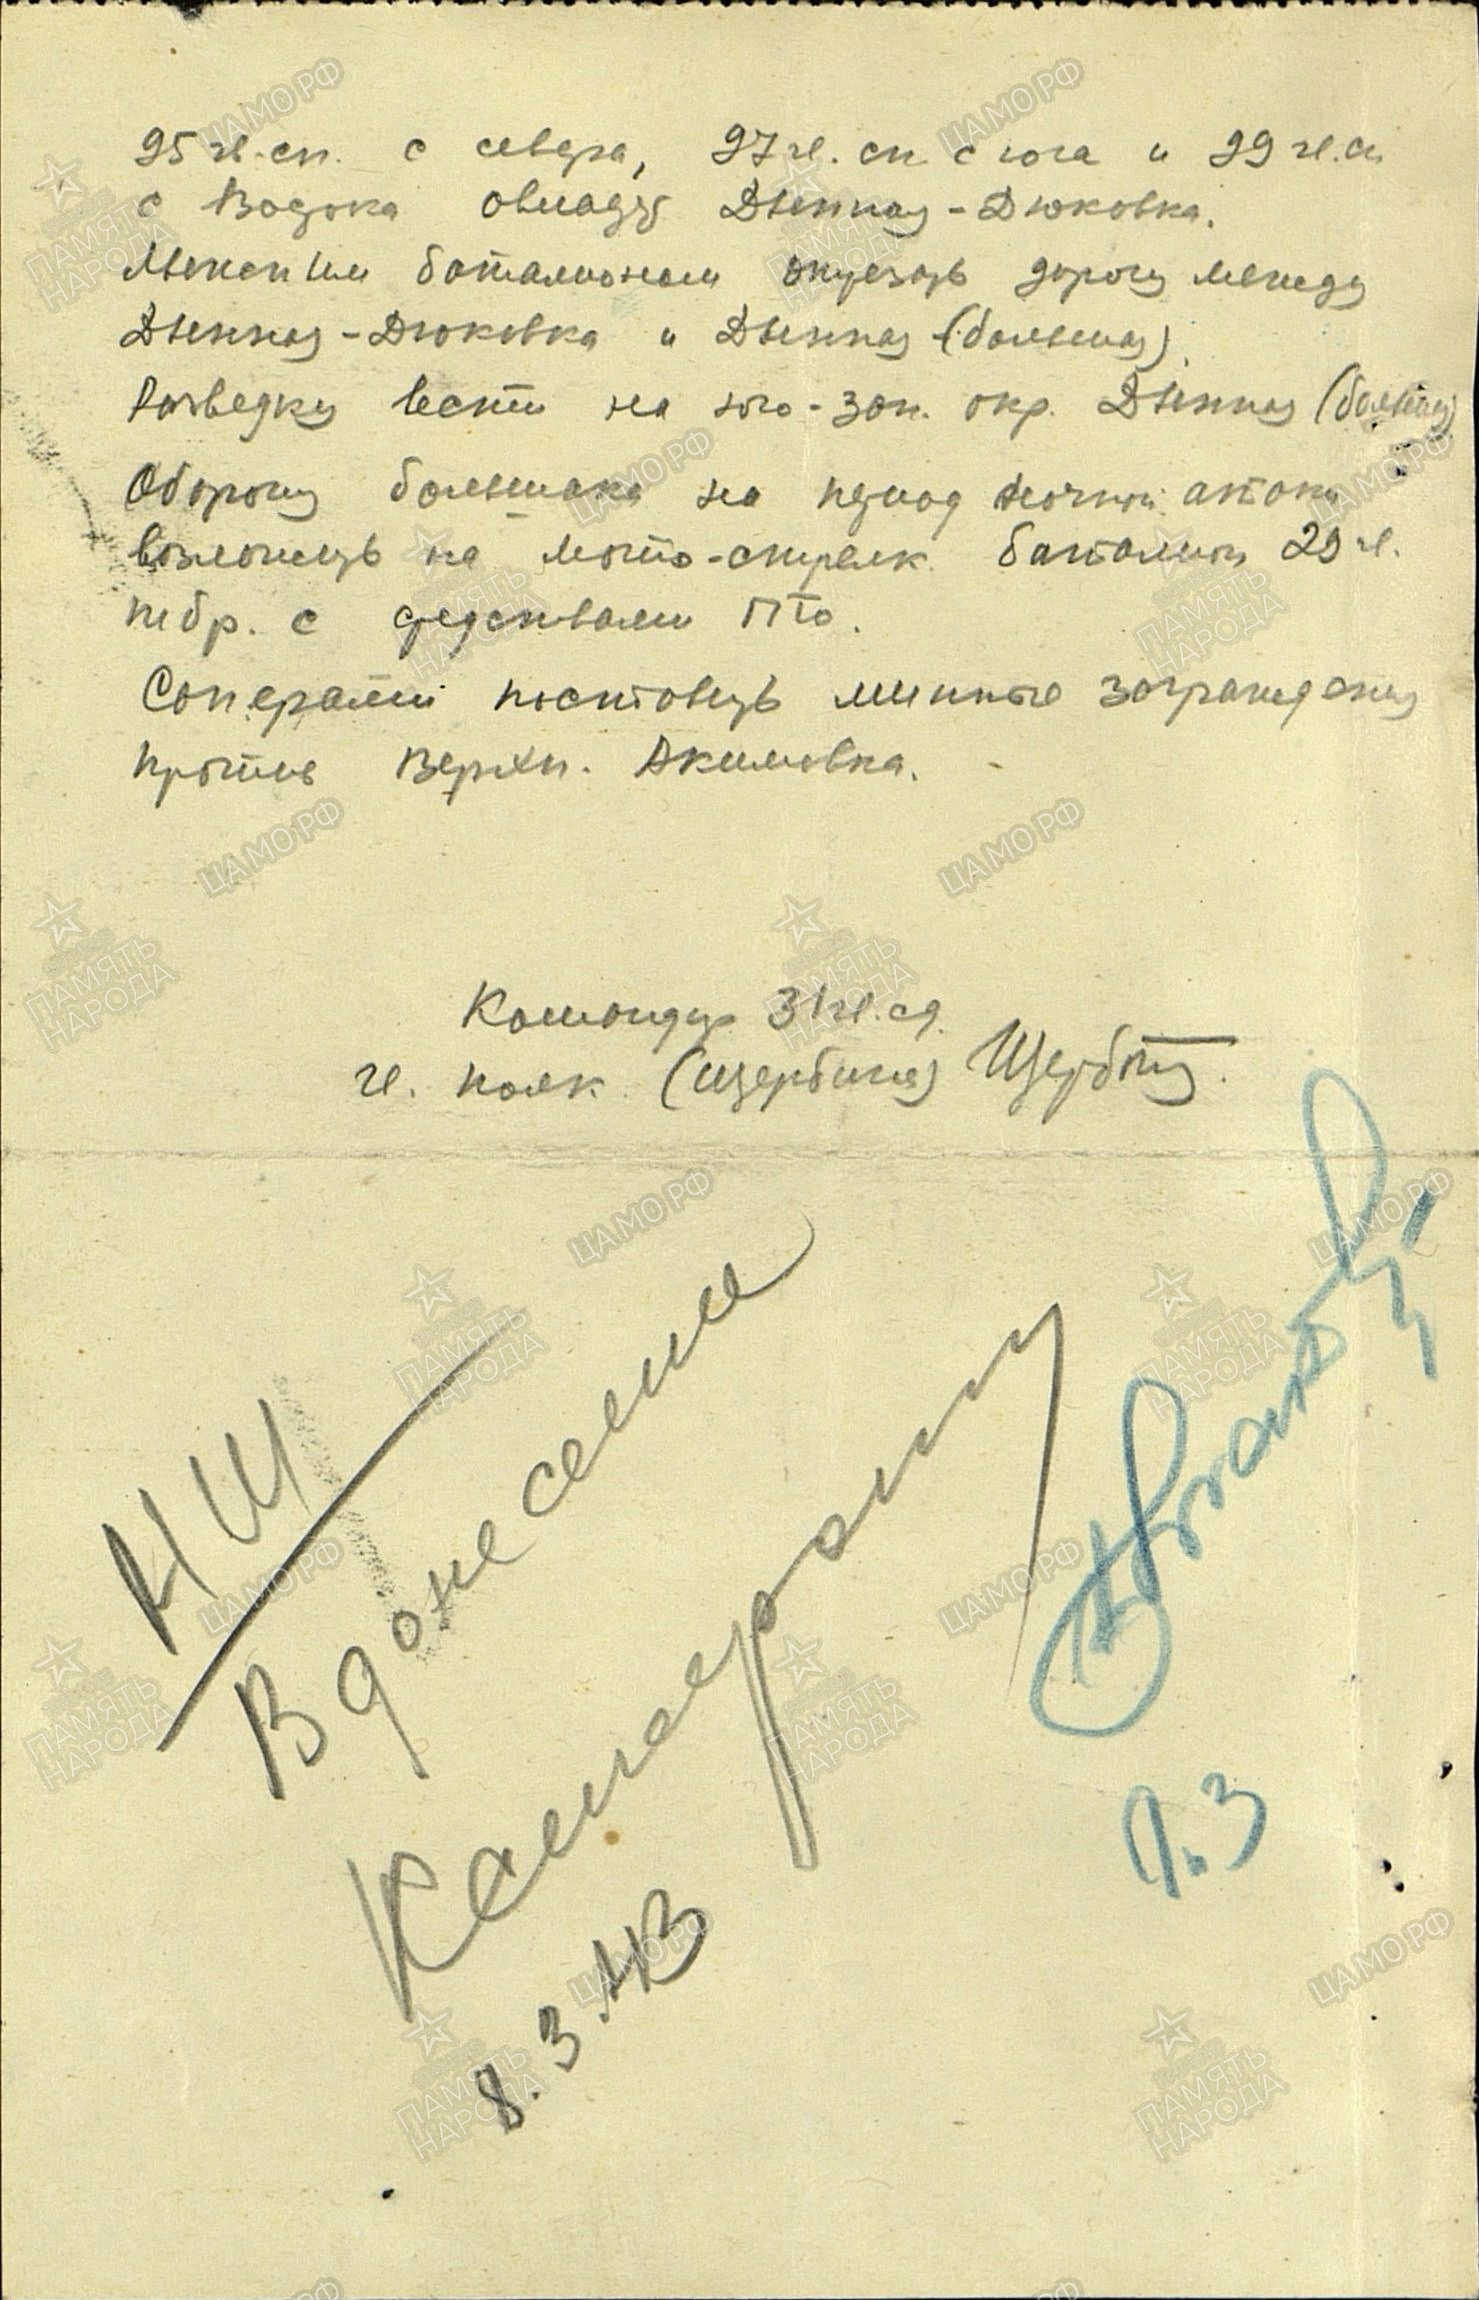 95 гв. сп. с севера, 97 гв. сп с юга и 99 гв. сп
с Востока овладеть Дынная-Дюковка.
батальоном отрезать дорогу между
Дынная-Дюковка и Дынная (большая).
Разведку вести на юго-зап. окр. Дынная (большая)
Оборону большака на период ночной атаки
возложить на мото-стрелк. батальон 29 гв.
тбр. с средствами ПТО.
Саперами поставить минные заграждения
против Верхн. Акимовка.
Командир 31 гв. сд.
гв. полк. (Щербина) Щербина
НШ
В донесение
8.3.43
9.3
ПАМЯТЬ НАРОДА
ЦАМО РФ